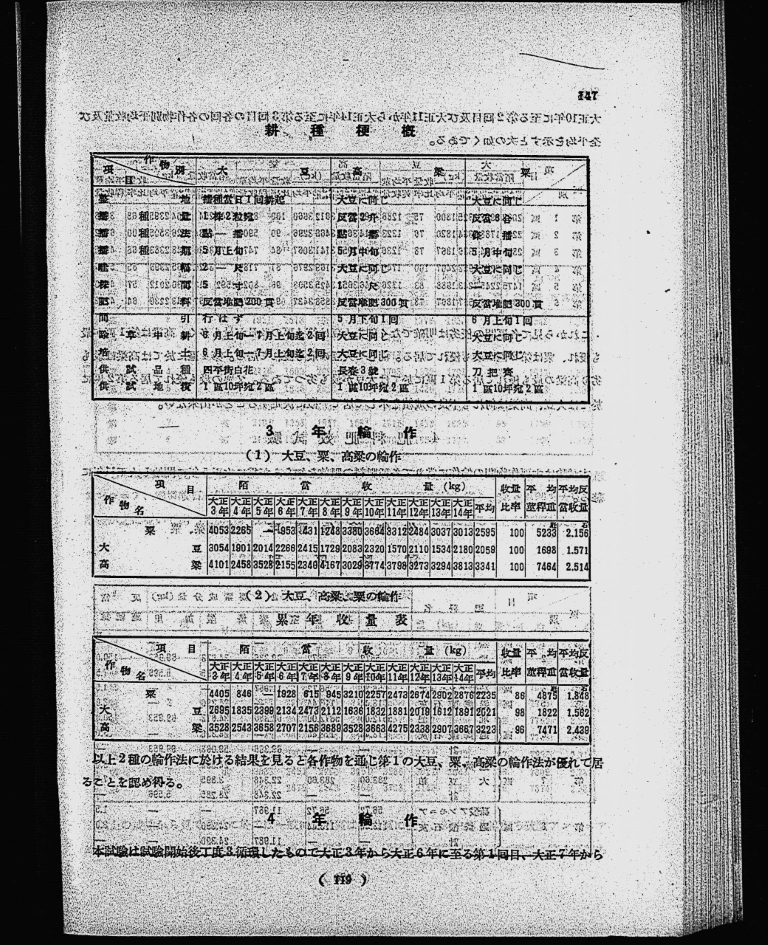 147
耕種梗概
項目 作物別 大豆 高粱 粟
整地 播種當日1回耕起 大豆に同じ 大豆に同じ
播種量 反當
播種法 點播 點播 條播
播種期 5月上旬 5月中旬 5月中旬
畦幅 大豆に同じ 大豆に同じ
株間
施肥 反當堆肥300貫 反當堆肥300貫 反當堆肥300貫
間引 行はず 5月下旬1回 6月上旬1回
除草中耕 6月上旬—7月上旬迄2回 大豆に同じ 大豆に同じ
培土 6月上旬—7月上旬迄2回 大豆に同じ 大豆に同じ
供試品種 四平街白花 長春3號 刀把齊
供試地積 1區10坪宛2區 1區10坪宛2區 1區10坪宛2區
3年輪作
(1) 大豆、粟、高粱の輪作
項目 陌當收量 (kg) 收量比率 平均壹稈重 平均反當收量
作物名 大正3年 大正4年 大正5年 大正6年 大正7年 大正8年 大正9年 大正10年 大正11年 大正12年 大正13年 大正14年 平均
粟 4053 2265 — 953 1431 1248 3380 3664 3312 2484 3037 3013 2595 100 5233 2.156
大豆 3054 1901 2014 2266 2415 1729 2083 2320 1570 2110 1534 2180 2059 100 1698 1.571
高粱 4101 2458 3528 2155 2349 4167 3029 3774 3798 3273 3294 3813 3341 100 7464 2.514
(2) 大豆、高粱、粟の輪作
累年收量表
項目 陌當收量 (kg) 收量比率 平均壹稈重 平均反當收量
作物名 大正3年 大正4年 大正5年 大正6年 大正7年 大正8年 大正9年 大正10年 大正11年 大正12年 大正13年 大正14年 平均
粟 4405 846 — 1928 615 945 3210 2257 2473 2674 2602 2876 2235 86 4875 1.848
大豆 2695 1835 2399 2134 2473 2112 1636 1832 1881 2019 1612 1891 2021 98 1822 1.562
高粱 3528 2543 3658 2707 2158 3689 3528 3663 4275 2338 2907 3667 3223 96 7471 2.439
以上2種の輪作法に於ける結果を見ると各作物を通じ第1の大豆、粟、高粱の輪作法が優れて居
ることを認め得る。
4年輪作
本試驗は試驗開始後丁度3循環したもので大正3年から大正6年に至る第1回目、大正7年から
( 119 )